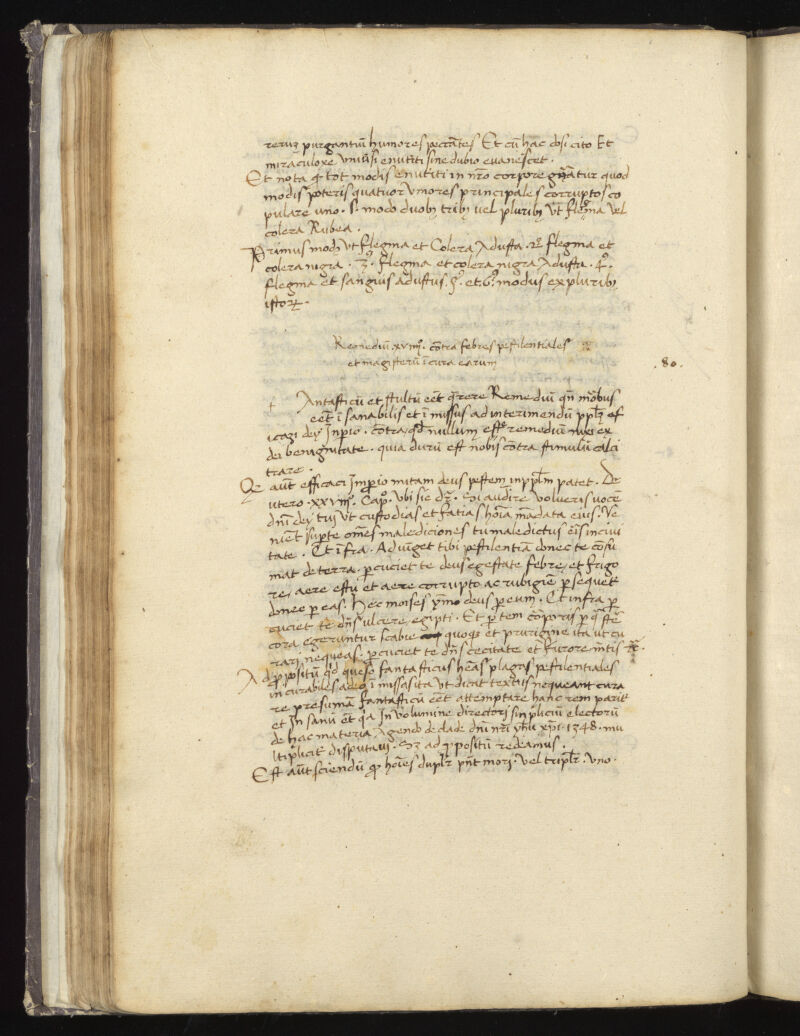 rerum purgantiū humores peccātes Et cū hac dosi cito Et
miraculoxe vniūsi enutiti sine dubio euanescet.
Et nota ꝙ tot modis enutiti in nr̄o corpore gn̄atur quod
modis poteris quatuor vmores principales corruptos co
pulare uno. s. modo duobꝫ tribꝫ vel pluribꝫ vt flegma vel
colera Rubea.
Primus modꝫ vt flegma et Colera Adusta. 2ꝰ flegma et
colera nigra. 3ꝰ. flegma et colera nigra Adusta. 4ꝰ.
flegma et sanguis adustus. 5ꝰ. et. 6ꝰ. modus ex pluribꝫ
istoꝝ.
Remediū. xviiij. cōtra febres pestilentiales
et magisteriū ī cura earum
.80.
Fantasticū et stultū eēt q̄rere Remediū qn̄ morbus
eēt ī sanabilis et ī missus ad interimendū pplꝫ ef
icazi dei Inperio. cōtra qd̄ nullum esse remediū nisi ex
dei benignitate. quia durū est nobis cōtra stimulū calci
trare.
Qe aūt efficaci Imperio mitam deus pestem in pplm̄ patet. De
utero. xxviij. Cap°. vbi sic dꝫ. Soi audire volueris uocē
dn̄i dei tui vt custodias et facias hoīa mādata eius. Ve
nient super te om̄es malediciones tu maledictus eris in ciui
tate. Et īfra. Adiūget tibi pestilentiā donec te cōsu
mat de terra. percuciet te deus egestate febre et frigo
re, aere estu et aere corrupto ac rubigiē persequet
donec pereas. Hec moises ymo deus per eum. Et infra per
cuciet te dn̄s ulcere egipti. Et ꝑtem corporis per q̄ ster
cora egeruntur scabie quoqꝫ et prurigine ita ut cu
rari nequeas. percuciet te dn̄s cecitate et furore mētis
Ad prositū qd̄ queso fantasticus hēas plagis pestilentiales
incurabiles adeo ī missas ita vt dicat textus nequeant cura
re presumā fantasticū eēt attemptare hanc rem pariē
et In sanū eēt qa In volumine directorj simpliciū electorū
de hac materia Agendo de clade dn̄i nr̄i yhu xp̄i. 1348. mu
ltipliciē disputaui. Sꝫ ad propositū redeamus.
Est aūt sciendū ꝙ hoīes duplꝫ pn̄t mori. vel triplꝫ. vno.